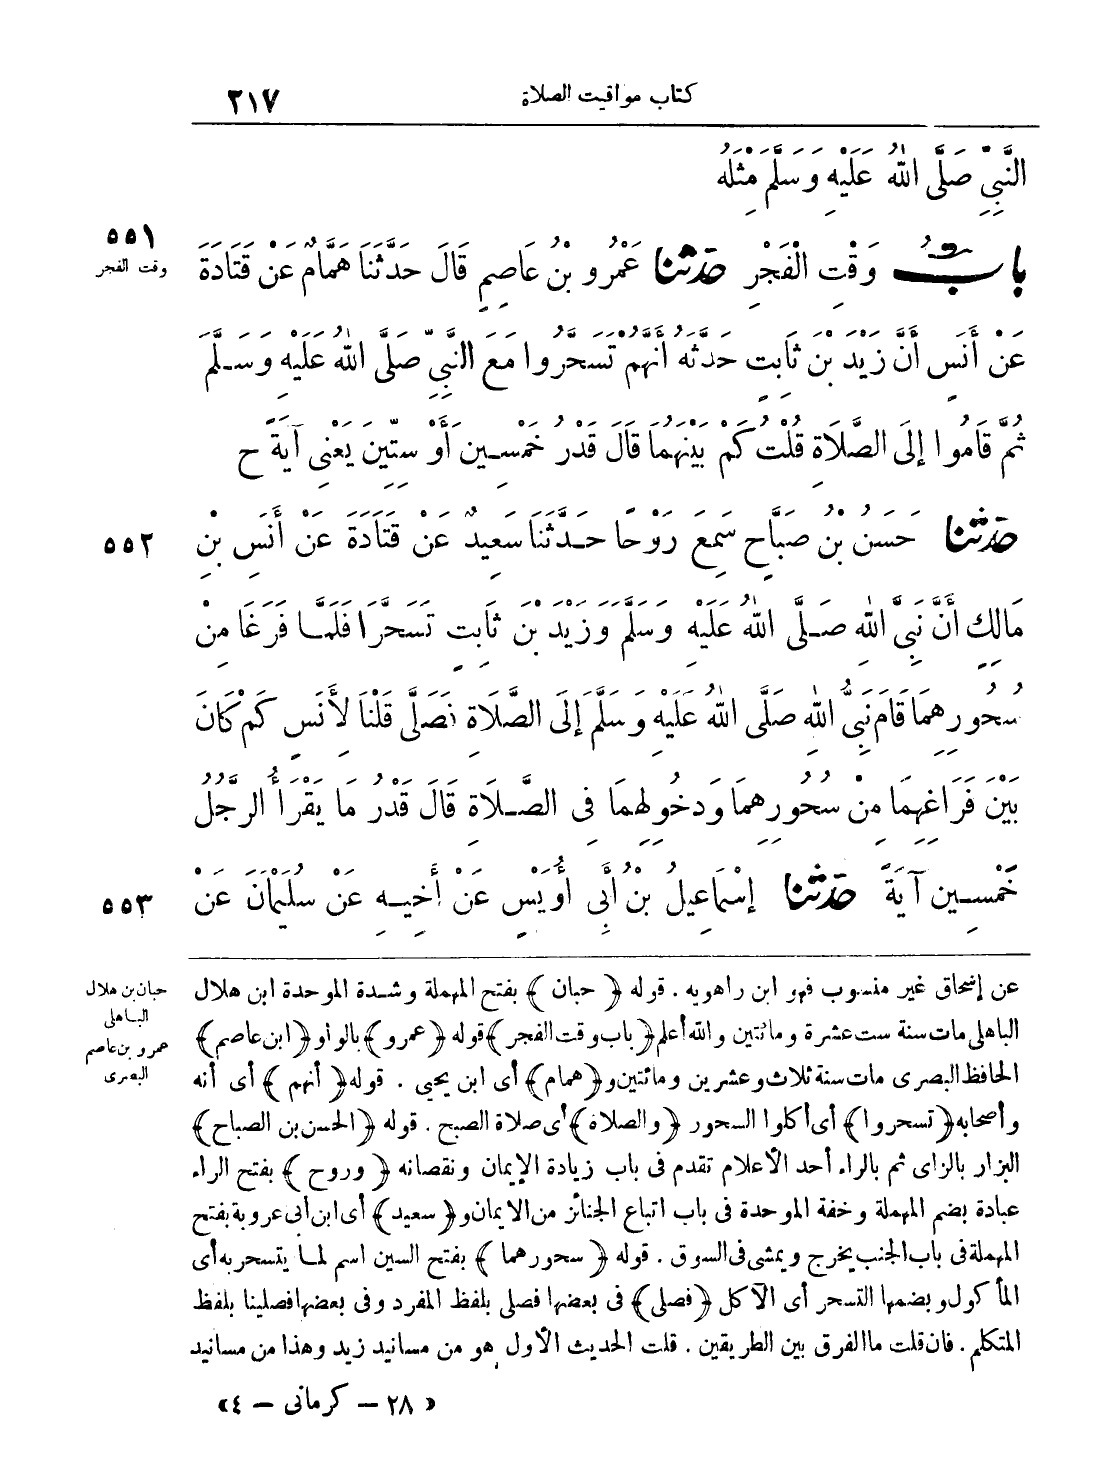 كتاب مواقيت الصلاة ٢١٧
النَّبِيِّ صَلَّى اللهُ عَلَيْهِ وَسَلَّمَ مِثْلَهُ
٥٥١
وقت الفجر
بابُ وَقْتِ الْفَجْرِ حدثنا عَمْرُو بْنُ عَاصِمٍ قَالَ حَدَّثَنَا هَمَّامٌ عَنْ قَتَادَةَ
عَنْ أَنَسٍ أَنَّ زَيْدَ بْنَ ثَابِتٍ حَدَّثَهُ أَنَّهُمْ تَسَحَّرُوا مَعَ النَّبِيِّ صَلَّى اللهُ عَلَيْهِ وَسَلَّمَ
ثُمَّ قَامُوا إِلَى الصَّلَاةِ قُلْتُ كَمْ بَيْنَهُمَا قَالَ قَدْرُ خَمْسِينَ أَوْ سِتِّينَ يَعْنِي آيَةً ح
٥٥٢
حدثنا حَسَنُ بْنُ صَبَّاحٍ سَمِعَ رَوْحًا حَدَّثَنَا سَعِيدٌ عَنْ قَتَادَةَ عَنْ أَنَسِ بْنِ
مَالِكٍ أَنَّ نَبِيَّ اللهِ صَلَّى اللهُ عَلَيْهِ وَسَلَّمَ وَزَيْدَ بْنَ ثَابِتٍ تَسَحَّرَا فَلَمَّا فَرَغَا مِنْ
سُحُورِهِمَا قَامَ نَبِيُّ اللهِ صَلَّى اللهُ عَلَيْهِ وَسَلَّمَ إِلَى الصَّلَاةِ فَصَلَّى قُلْنَا لِأَنَسٍ كَمْ كَانَ
بَيْنَ فَرَاغِهِمَا مِنْ سُحُورِهِمَا وَدُخُولِهِمَا فِي الصَّلَاةِ قَالَ قَدْرُ مَا يَقْرَأُ الرَّجُلُ
٥٥٣
خَمْسِينَ آيَةً حدثنا إِسْمَاعِيلُ بْنُ أَبِي أُوَيْسٍ عَنْ أَخِيهِ عَنْ سُلَيْمَانَ عَنْ
حبان بن هلال
الباهلى
عمرو بن عاصم
البصرى
عن إسحاق غير منسوب فهو ابن راهويه . قوله ﴿حبان﴾ بفتح المهملة وشدة الموحدة ابن هلال
الباهلى مات سنة ست عشرة ومائتين والله أعلم ﴿باب وقت الفجر﴾ قوله ﴿عمرو﴾ بالواو ﴿ابن عاصم﴾
الحافظ البصرى مات سنة ثلاث وعشرين ومائتين و﴿همام﴾ أى ابن يحيى . قوله ﴿أنهم﴾ أى أنه
وأصحابه ﴿تسحروا﴾ أى أكلوا السحور ﴿والصلاة﴾ أى صلاة الصبح . قوله ﴿الحسن بن الصباح﴾
البزار بالزاى ثم بالراء أحد الأعلام تقدم فى باب زيادة الإيمان ونقصانه ﴿وروح﴾ بفتح الراء
عبادة بضم المهملة وخفة الموحدة فى باب اتباع الجنائز من الايمان و﴿سعيد﴾ أى ابن أبى عروبة بفتح
المهملة فى باب الجنب يخرج ويمشى فى السوق . قوله ﴿سحورهما﴾ بفتح السين اسم لما يتسحر به أى
المأكول وبضمها التسحر أى الآكل ﴿فصلى﴾ فى بعضها فصلى بلفظ المفرد وفى بعضها فصلينا بلفظ
المتكلم . فان قلت ما الفرق بين الطريقين . قلت الحديث الأول هو من مسانيد زيد وهذا من مسانيد
« ٢٨ – كرمانى – ٤ »